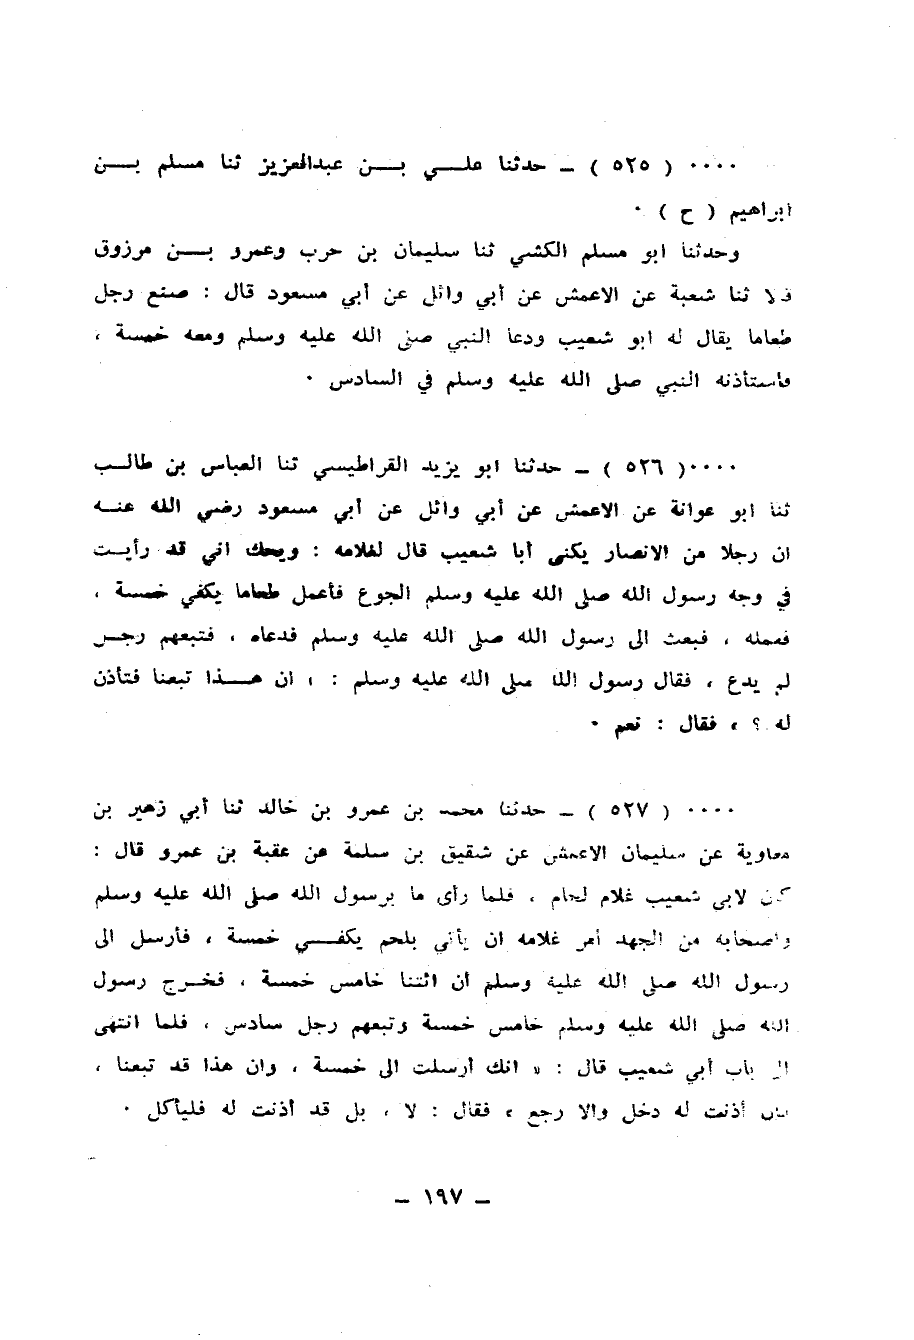 ٠٠٠٠ ( ٥٢٥ ) ـ حدثنا علـــي بـــن عبدالعزيز ثنا مسلم بـــن
ابراهيم ( ح ) ٠
وحدثنا ابو مسلم الكشي ثنا سليمان بن حرب وعمرو بـــن مرزوق
قالا ثنا شعبة عن الاعمش عن أبي وائل عن أبي مسعود قال : صنع رجل
طعاما يقال له ابو شعيب ودعا النبي صلى الله عليه وسلم ومعه خمسة ،
فاستأذنه النبي صلى الله عليه وسلم في السادس ٠
٠٠٠٠( ٥٢٦ ) ـ حدثنا ابو يزيد القراطيسي ثنا العباس بن طالــب
ثنا ابو عوانة عن الاعمش عن أبي وائل عن أبي مسعود رضي الله عنــه
ان رجلا من الانصار يكنى أبا شعيب قال لغلامه : ويحك اني قد رأيــت
في وجه رسول الله صلى الله عليه وسلم الجوع فأعمل طعاما يكفي خمسة ،
فعمله ، فبعث الى رسول الله صلى الله عليه وسلم فدعاه ، فتبعهم رجــل
لم يدع ، فقال رسول الله صلى الله عليه وسلم : « ان هـــذا تبعنا فتأذن
له ؟ » فقال : نعم ٠
٠٠٠٠ ( ٥٢٧ ) ـ حدثنا محمد بن عمرو بن خالد ثنا أبي زهير بن
معاوية عن سليمان الاعمش عن شقيق بن سلمة عن عقبة بن عمرو قال :
كان لابي شعيب غلام لحام ، فلما رأى ما برسول الله صلى الله عليه وسلم
واصحابه من الجهد أمر غلامه ان يأتي بلحم يكفـــي خمسة ، فأرسل الى
رسول الله صلى الله عليه وسلم أن ائتنا خامس خمسة ، فخــرج رسول
الله صلى الله عليه وسلم خامس خمسة وتبعهم رجل سادس ، فلما انتهى
الى باب أبي شعيب قال : « انك أرسلت الى خمسة ، وان هذا قد تبعنا ،
فان أذنت له دخل والا رجع » فقال : لا ، بل قد أذنت له فليأكل ٠
ـ ١٩٧ ـ